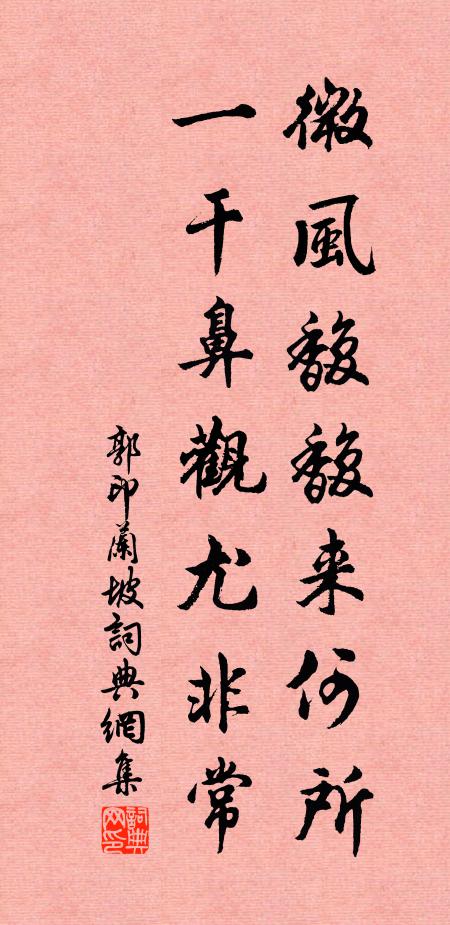 微風馥馥来何所
一干鼻觀尤非常
郭印蘭坡詞典網集
詞典网印